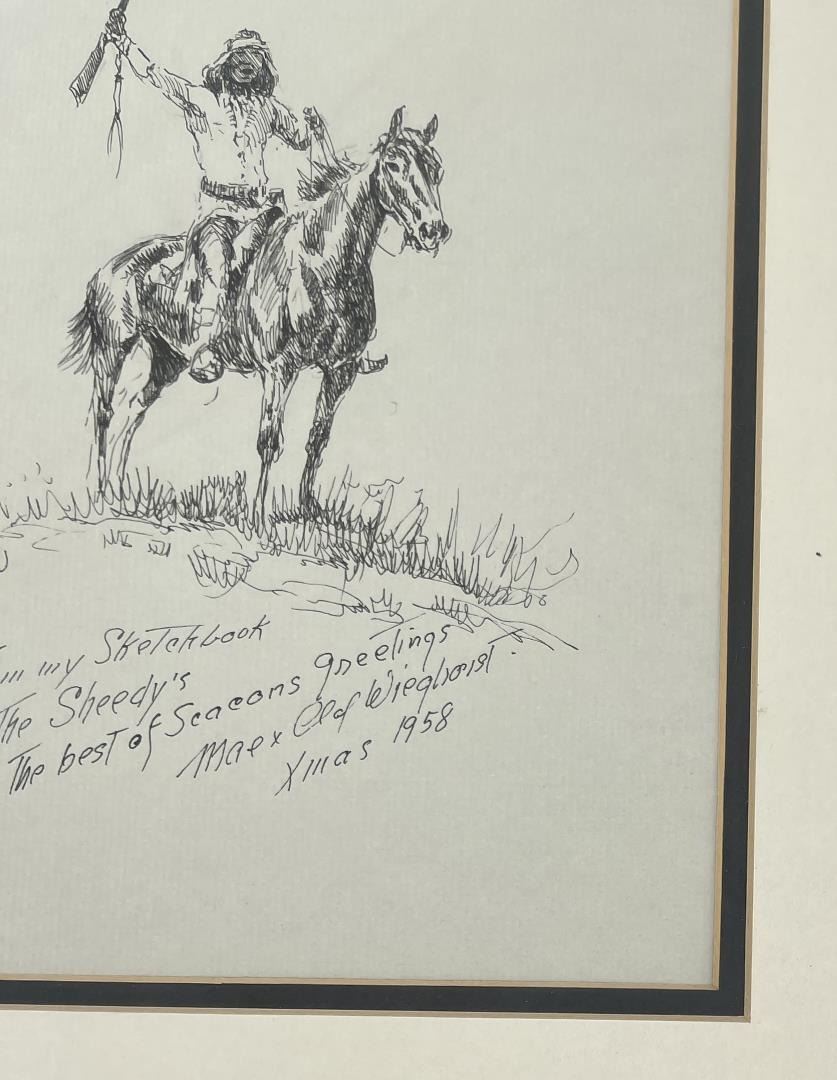 my Sketchbook
The Sheedy's
The best of Seacons greetings
Olaf Wieghorst.
Xmas 1958